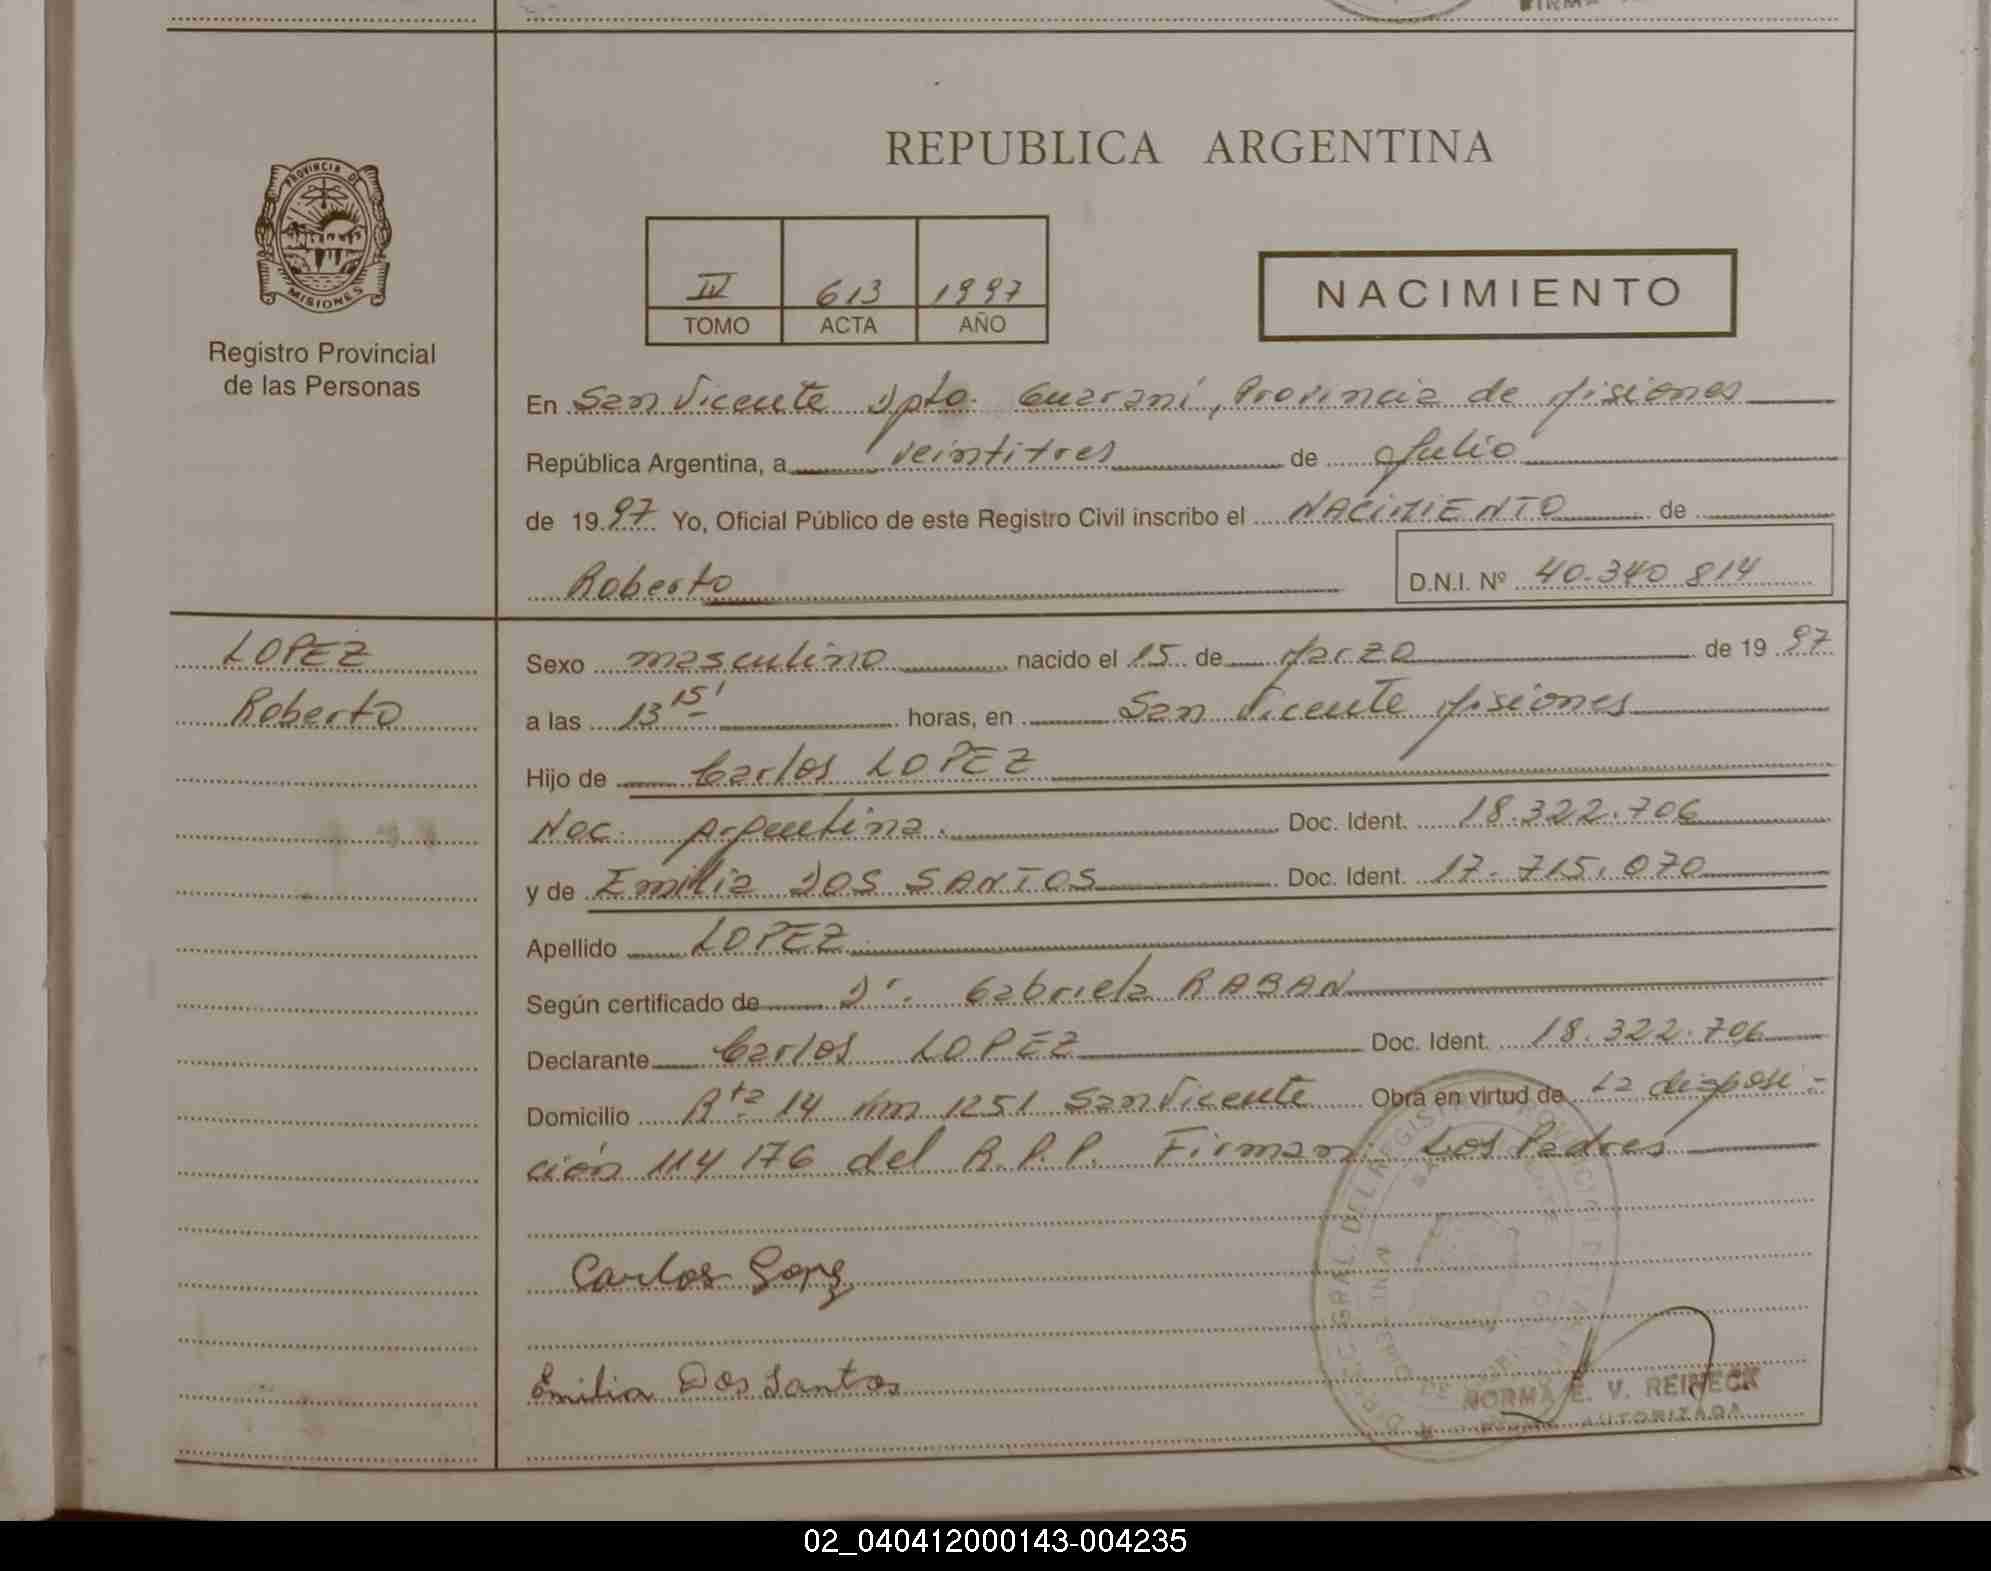 REPUBLICA ARGENTINA
PROVINCIA DE
MISIONES
Registro Provincial
de las Personas
IV 613 1997
TOMO ACTA AÑO
NACIMIENTO
En San Vicente Dpto. Guaraní, Provincia de Misiones
República Argentina, a veintitres de Julio
de 1997 Yo, Oficial Público de este Registro Civil inscribo el NACIMIENTO de
Roberto D.N.I. Nº 40.340 814
LOPEZ
Roberto
Sexo masculino nacido el 15 de Marzo de 1997
a las 13 15' horas, en San Vicente Misiones
Hijo de Carlos LOPEZ
Nac. Argentina. Doc. Ident. 18.322.706
y de Emilia DOS SANTOS Doc. Ident. 17.715.070
Apellido LOPEZ
Según certificado de Dr. Gabriela RABAN
Declarante Carlos LOPEZ Doc. Ident. 18.322.706
Domicilio Rta 14 Km 1251 San Vicente Obra en virtud de La disposi-
ción 114/76 del R.P.P. Firman: Los Padres
Carlos Lopez
Emilia Dos Santos
NORMA E. V. REINECK
FIRMA AUTORIZADA
02_040412000143-004235